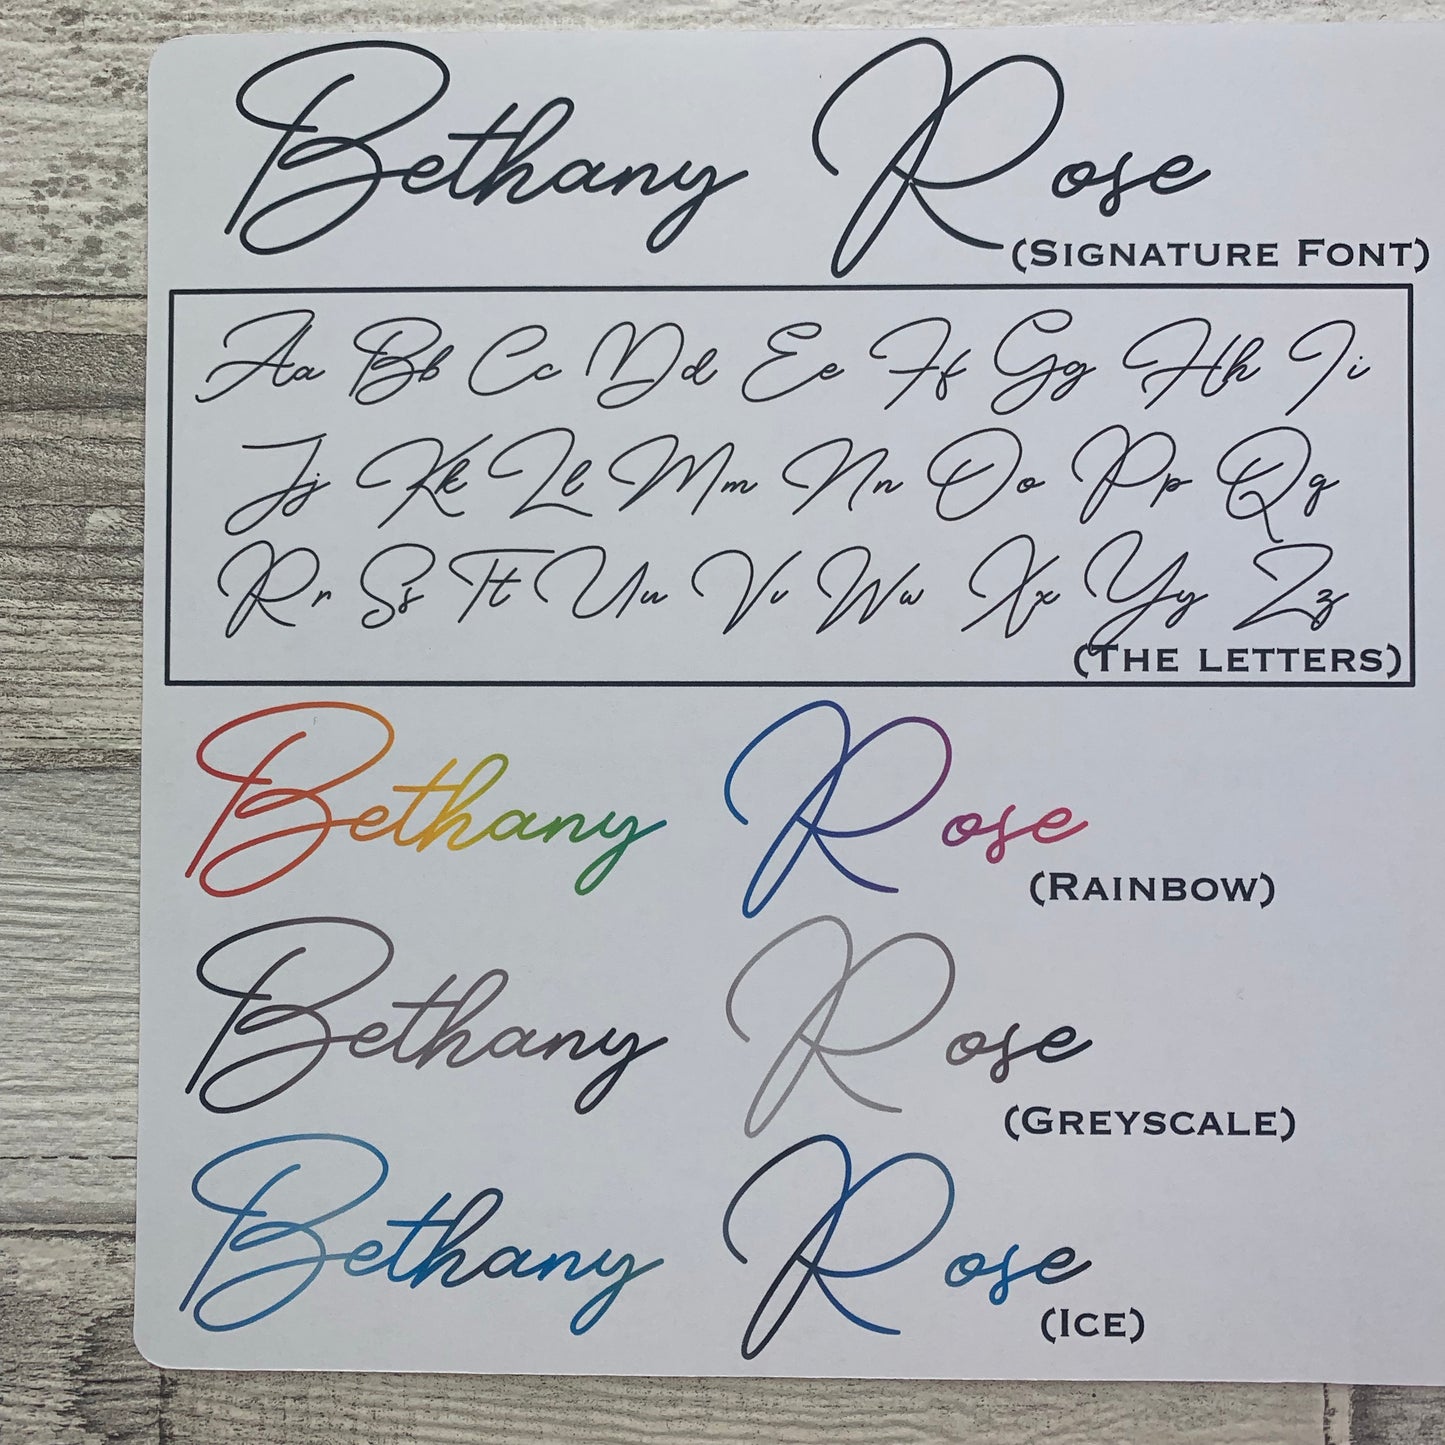 Bethany Rose
(Signature Font)
Aa Bb Cc Dd Ee Ff Gg Hh Ii
Jj Kk Ll Mm Nn Oo Pp Qq
Rr Ss Tt Uu Vv Ww Xx Yy Zz
(The letters)
Bethany Rose
(Rainbow)
Bethany Rose
(Greyscale)
Bethany Rose
(Ice)